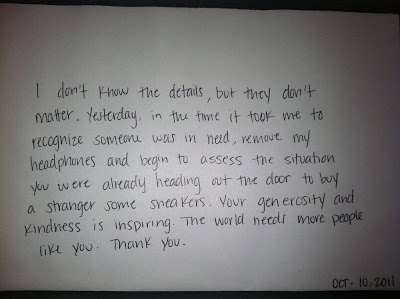 I don't know the details, but they don't
matter. Yesterday, in the time it took me to
recognize someone was in need, remove my
headphones and begin to assess the situation
you were already heading out the door to buy
a stranger some sneakers. Your generosity and
kindness is inspiring. The world needs more people
like you. Thank you.
OCT. 10, 2011